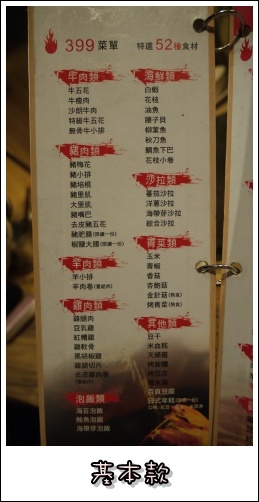 399 菜單
特選 52種食材
牛肉類
牛五花
牛瘦肉
沙朗牛肉
特級牛五花
無骨牛小排
豬肉類
豬梅花
豬小排
豬培根
豬里肌
大里肌
豬嘴巴
去皮豬五花
豬肥腸(限續一份)
椒鹽大腸(限續一份)
羊肉類
羊小排
羊肉卷
雞肉類
雞腿肉
豆乳雞
紅糟雞
雞軟骨
黑胡椒雞
雞腿切片
去皮雞肉卷
泡飯類
海苔泡飯
鮭魚泡飯
海帶芽泡飯
海鮮類
白蝦
花枝
油魚
腰子貝
柳葉魚
秋刀魚
鯛魚下巴
花枝小卷
沙拉類
蕃茄沙拉
洋蔥沙拉
海帶芽沙拉
綜合沙拉
青菜類
玉米
青椒
香菇
杏鮑菇
金針菇(熟食)
烤青菜(熟食)
其他類
豆干
米血糕
天婦羅
百頁豆腐
日式年糕
基本款